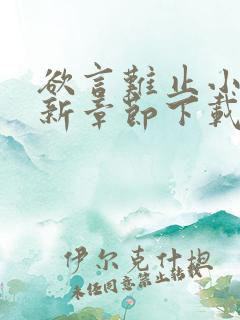 欲言難止小
新章節下載
伊尔克什摠
未经同意禁止转载